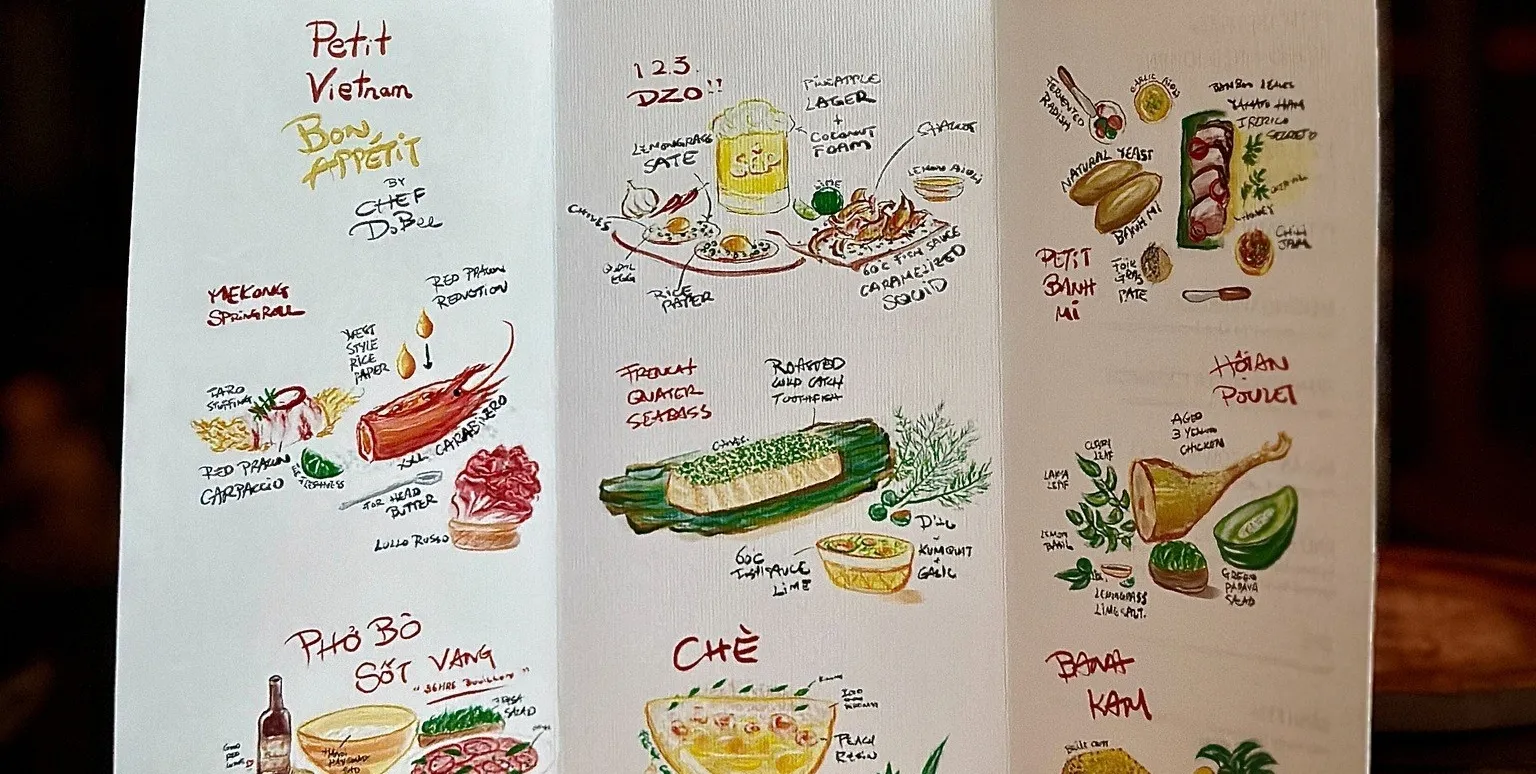 Petit
Vietnam
BON
APPÉTIT
BY
CHEF
DoBee
MEKONG
SPRINGROLL
RED PRAWN
REDUCTION
WEST
STYLE
RICE
PAPER
TARO
STUFFING
RED PRAWN
CARPACCIO
XXL CARABINERO
FOR HEAD
BUTTER
LOLLO ROSSO
PHỞ BÒ
SỐT VANG
"36HRS BOUILLON"
SALAD
GOOD
RED
1 2 3.
DZO!!
PINEAPPLE
LAGER
+
COCONUT
FOAM
LEMONGRASS
SATE
SHALLOT
LEMON AIOLI
LIME
CHIVES
QUAIL
EGG
RICE
PAPER
60°C FISH SAUCE
CARAMELIZED
SQUID
FRENCH
QUATER
SEABASS
ROASTED
WILD CATCH
TOOTHFISH
CHIVES
DILL
KUMQUAT
+
GARLIC
60°C
FISHSAUCE
LIME
CHÈ
PEACH
RESIN
FERMENTED
RADISH
GARLIC AIOLI
BAMBOO LEAVES
YAMATO HAM
IBERICO
SECRETO
NATURAL YEAST
BANH MI
HONEY
CHILI
JAM
PETIT
BANH
MI
FOIE
GRAS
PATE
HỘI AN
POULET
AGED
3 YEARS
CHICKEN
CURRY
LEAF
LEAF
LEMON
BASIL
LEMONGRASS
LIME SALT.
GREEN
PAPAYA
SALAD
BANH
KAM